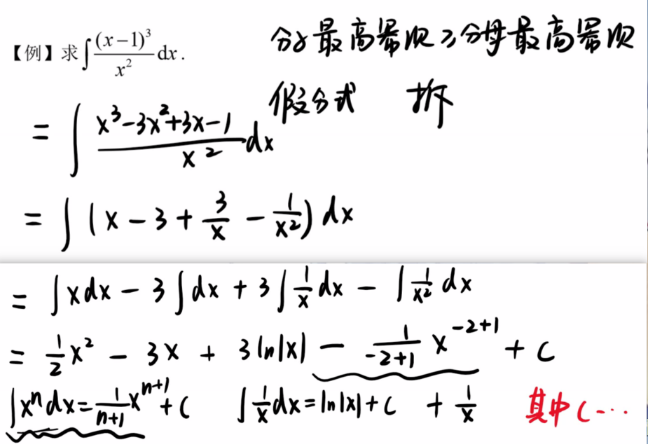 【例】求∫(x-1)³/x² dx.
分子最高幂次≥分母最高幂次
假分式 拆
= ∫ (x³-3x²+3x-1)/x² dx
= ∫ (x - 3 + 3/x - 1/x²) dx
= ∫xdx - 3∫dx + 3∫1/x dx - ∫1/x² dx
= 1/2 x² - 3x + 3ln|x| - 1/(-2+1) x^(-2+1) + C
∫xⁿdx = 1/(n+1) x^(n+1) + C ∫1/x dx = ln|x| + C + 1/x 其中C…